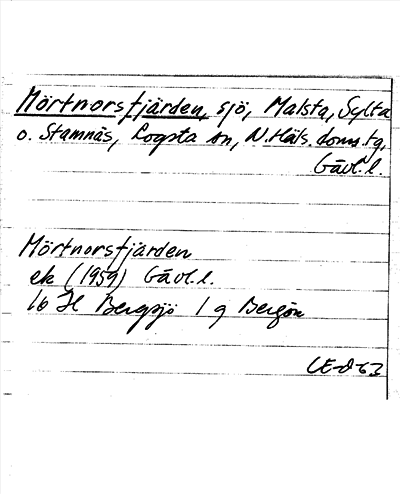 Mörtnorsfjärden, sjö, Malsta, Sylta
o. Stamnäs, Rogsta sn, N. Häls. doms.tg,
Gävl. l.
Mörtnorsfjärden
ek (1959) Gävl. l.
16 H Bergsjö 1 g Bergön
CE-d 63